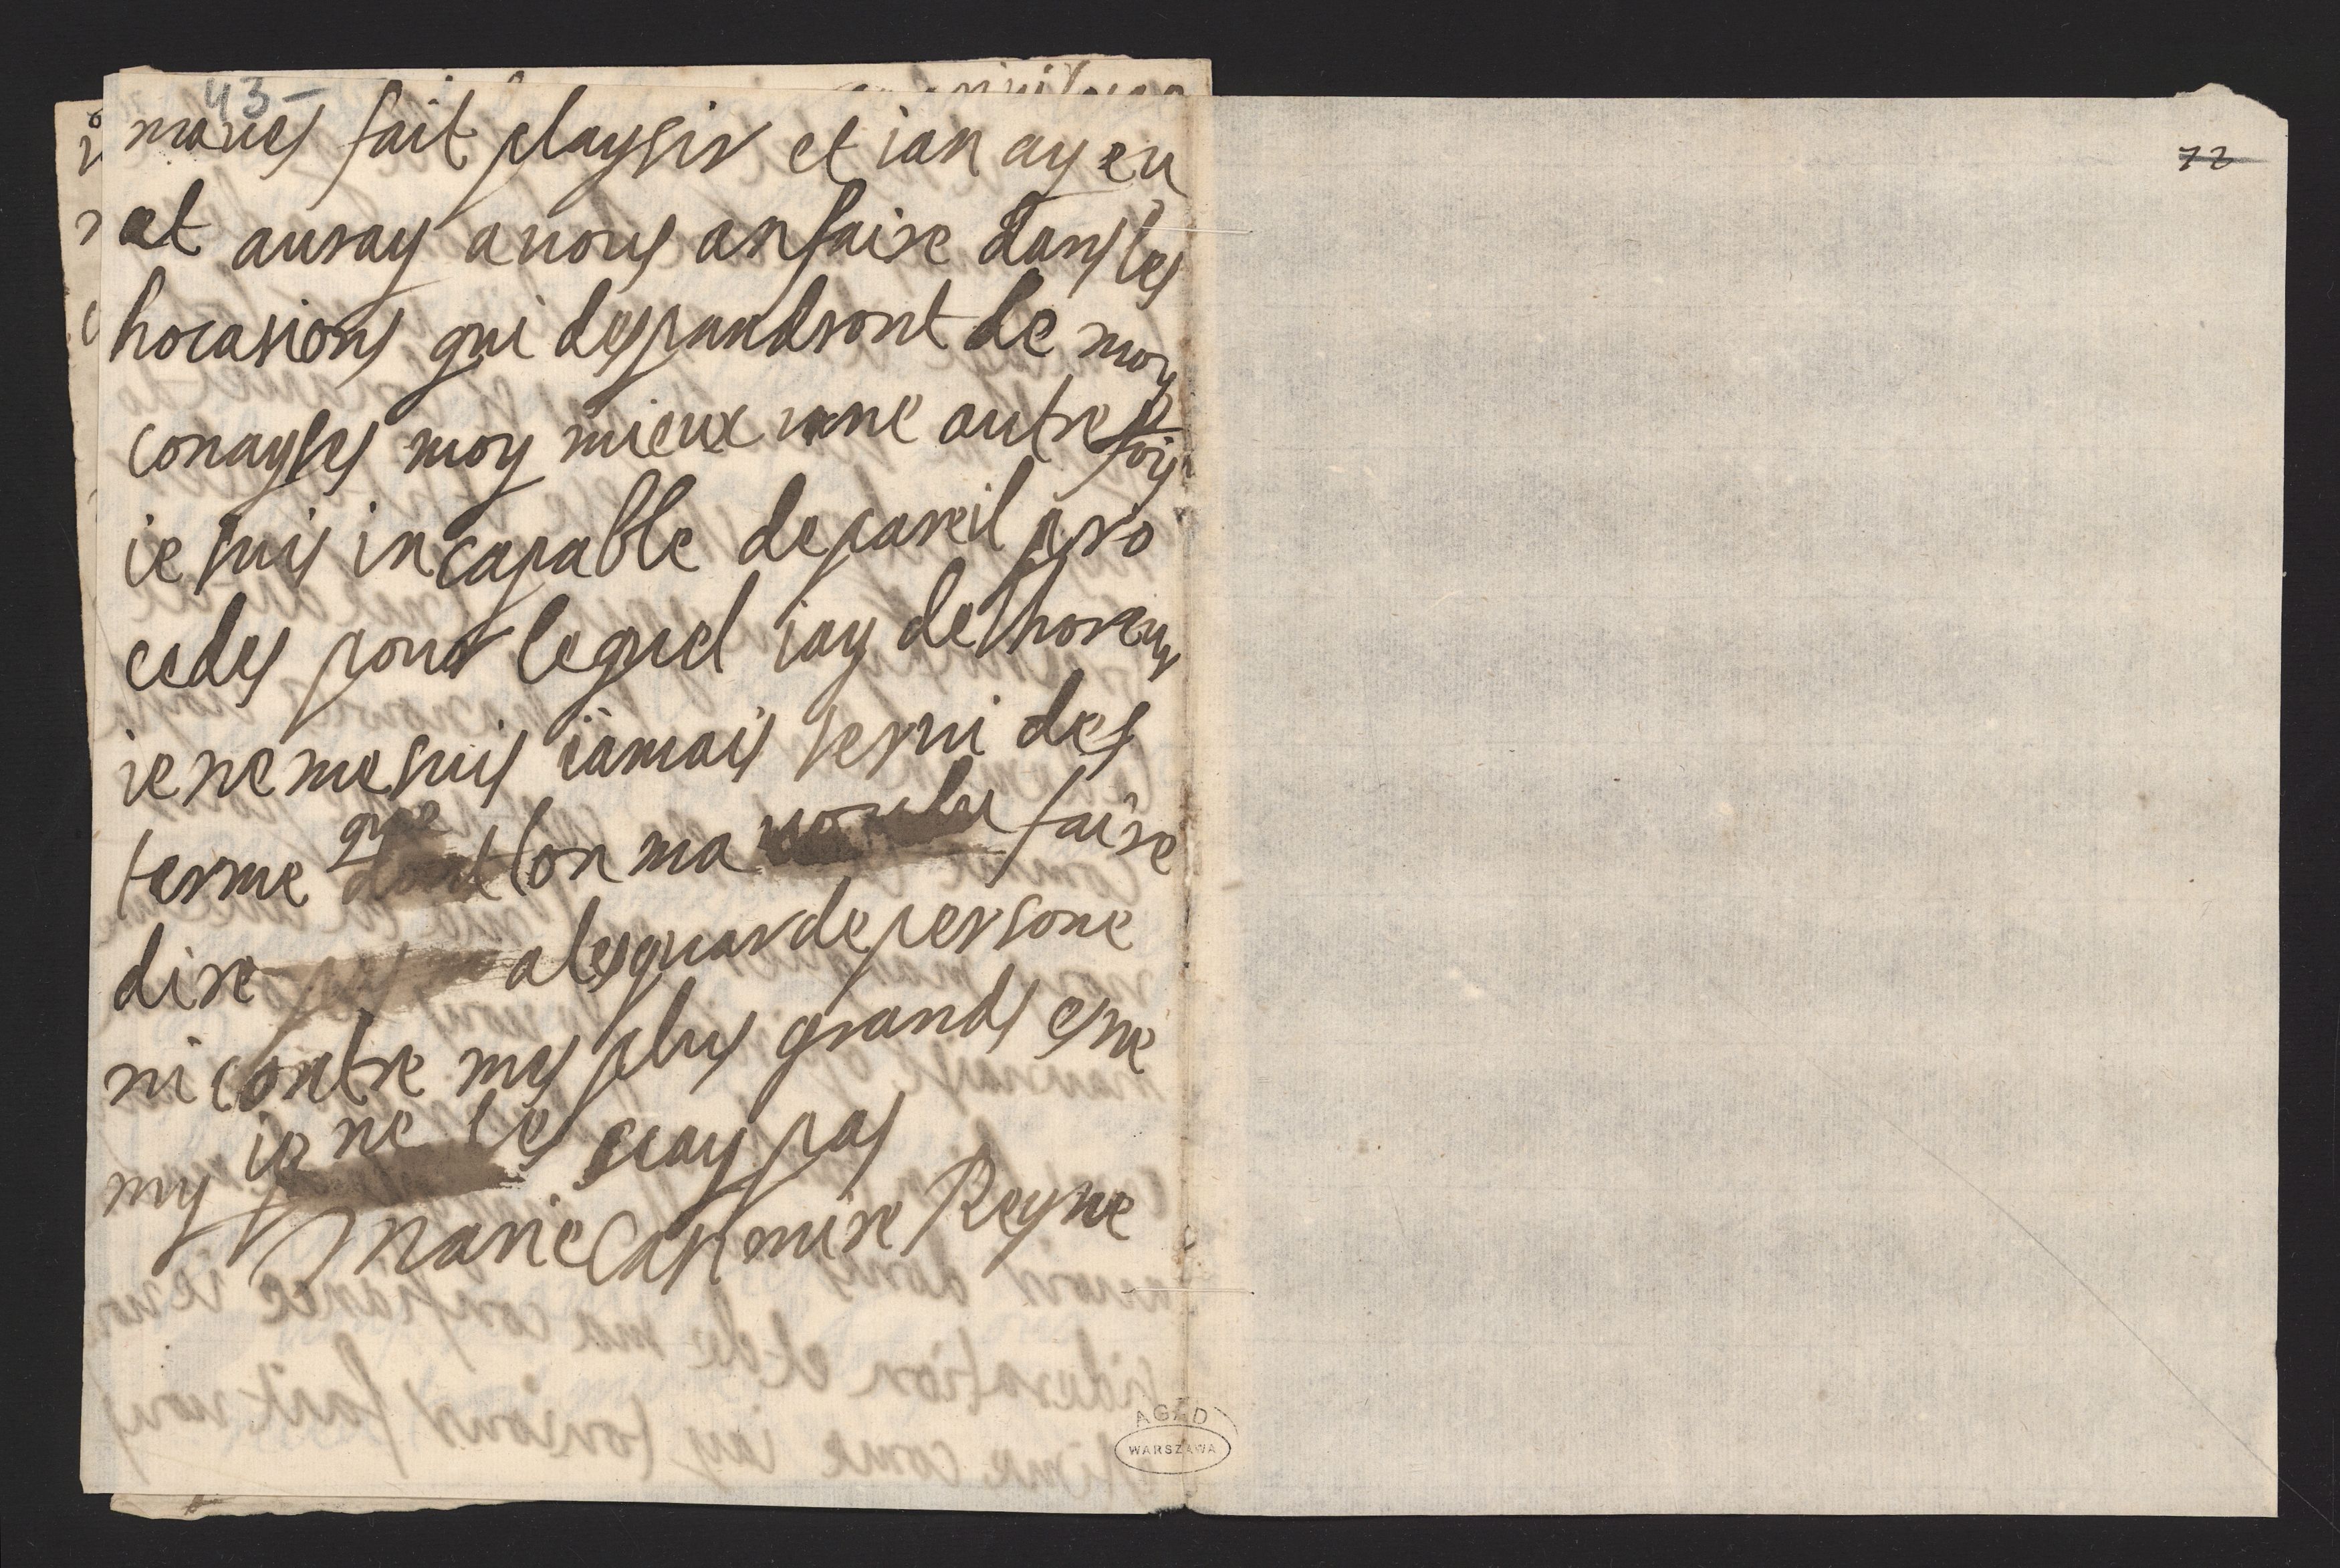 43-
maues fait playsir et ian ay eu
et auray a uous an faire dans les
hocasions qui despandront de moy
conayses moy mieux une autre fois
ie suis incapable de pareil pro
cedes pour lequel iay de lhoreur
ie ne me suis iamais serui des
terme que lon ma voulu faire
dire a lesguar de persone
ni contre mes plus grands ene
my ie ne les scay pas
Marie Casimire Reyne
72
AGAD
WARSZAWA